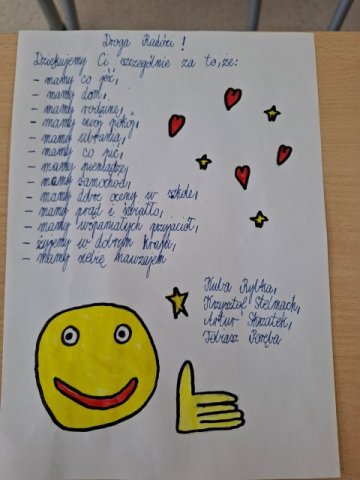 Droga Radości !
Dziękujemy Ci szczególnie za to, że:
- mamy co jeść,
- mamy dom,
- mamy rodzinę,
- mamy swój pokój,
- mamy ubrania,
- mamy co pić,
- mamy pieniądze,
- mamy samochód,
- mamy dobre oceny w szkole,
- mamy prąd i światło,
- mamy wspaniałych przyjaciół,
- żyjemy w dobrym kraju,
- mamy siebie nawzajem
Kuba Rybka,
Krzysztof Stelmach,
Artur Skrzatek,
Tobiasz Poręba